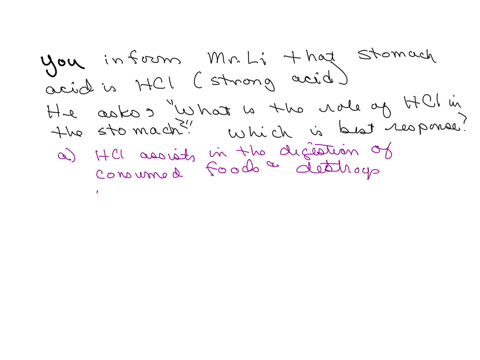 You inform Mr. Li that stomach
acid is HCl (strong acid)
He asks, "What is the role of HCl in
the stomach?" Which is best response?
a) HCl assists in the digestion of
consumed foods & destroys